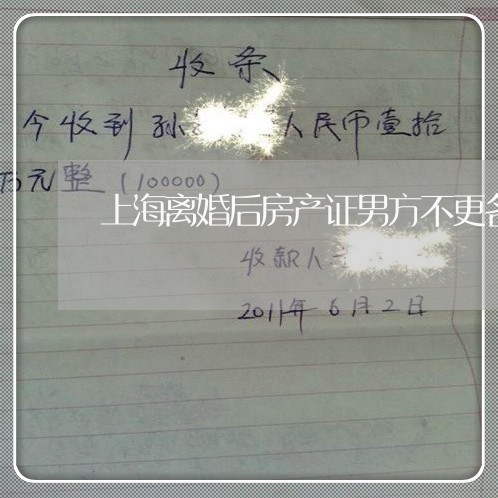 收条
今收到孙 人民币壹拾
万元整（100000）
上海离婚后房产证男方不更名
收款人
2011年6月2日